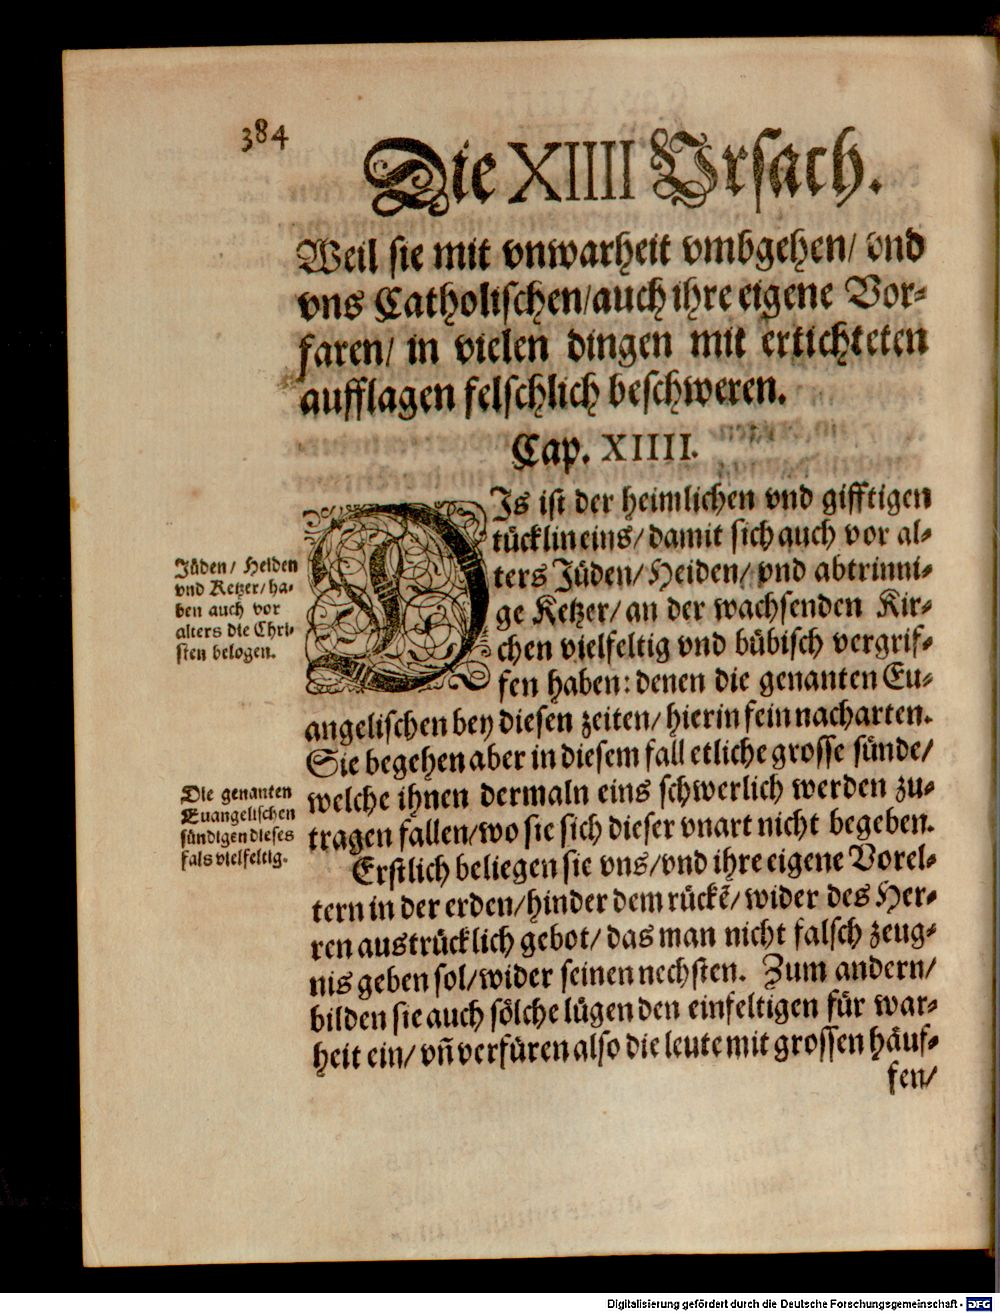 384
Die XIIII Vrsach.
Weil sie mit vnwarheit vmbgehen/ vnd
vns Catholischen/auch ihre eigene Vor-
faren/ in vielen dingen mit ertichteten
aufflagen felschlich beschweren.
Cap. XIIII.
DIs ist der heimlichen vnd gifftigen
tücklin eins/ damit sich auch vor al-
ters Jüden/Heiden/ vnd abtrinni-
ge Ketzer/ an der wachsenden Kir-
chen vielfeltig vnd bübisch vergrif-
fen haben: denen die genanten Eu-
angelischen bey diesen zeiten/ hierin fein nacharten.
Sie begehen aber in diesem fall etliche grosse sünde/
welche ihnen dermaln eins schwerlich werden zu-
tragen fallen/wo sie sich dieser vnart nicht begeben.
Erstlich beliegen sie vns/vnd ihre eigene Vorel-
tern in der erden/hinder dem rückē/ wider des Her-
ren austrücklich gebot/ das man nicht falsch zeug-
nis geben sol/wider seinen nechsten. Zum andern/
bilden sie auch sölche lügen den einfeltigen für war-
heit ein/ vñ verfüren also die leute mit grossen häuf-
fen/
Jüden/ Heiden
vnd Ketzer/ha-
ben auch vor
alters die Chri-
sten belogen.
Die genanten
Euangelischen
sündigen dieses
fals vielfeltig.
Digitalisierung gefördert durch die Deutsche Forschungsgemeinschaft - DFG